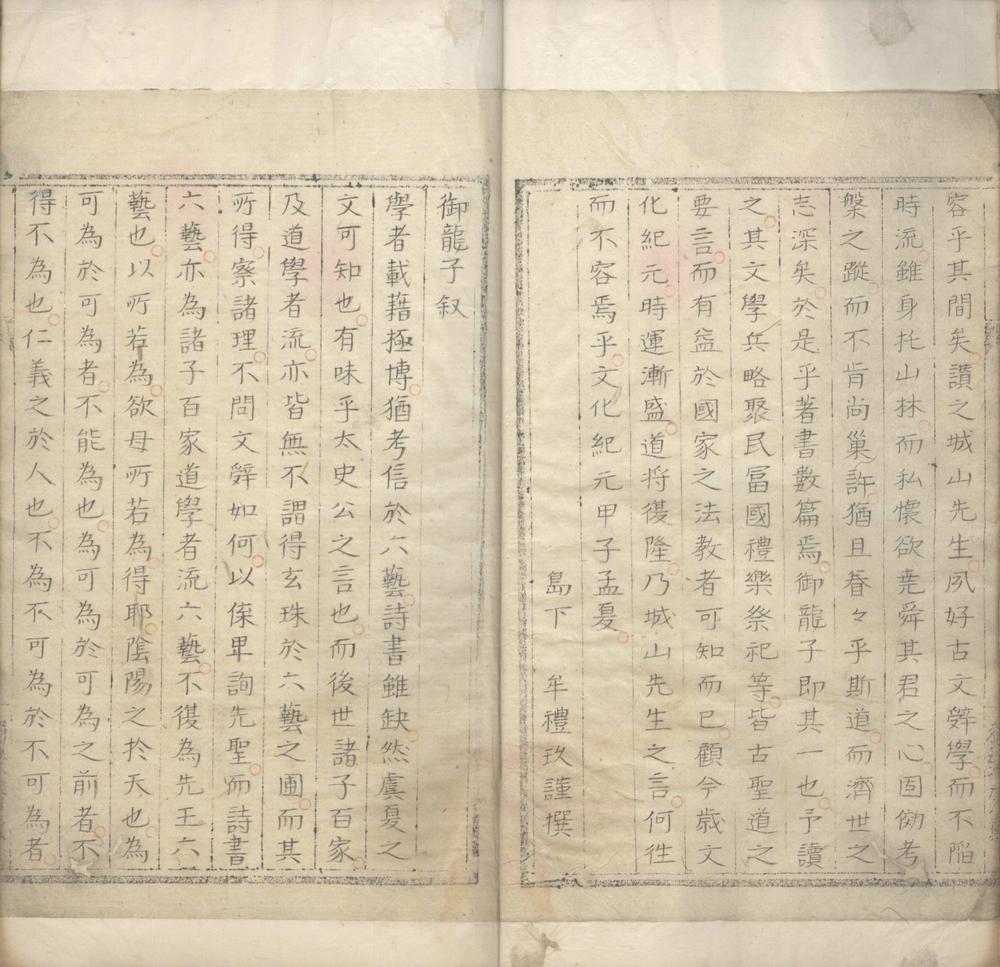 容乎其間矣讃之城山先生夙好古文辤學而不陷
時流雖身托山林而私懷欲堯舜其君之心固傚考
槃之蹤而不肯尚巢許猶且眷々乎斯道而濟世之
志深矣於是乎著書數篇焉御龍子即其一也予讀
之其文學兵略聚民冨國禮樂祭祀等皆古聖道之
要言而有益於國家之法教者可知而已顧今歳文
化紀元時運漸盛道将復隆乃城山先生之言何徃
而不容焉乎文化紀元甲子孟夏
島下　牟禮玖謹撰
御龍子叙
學者載藉極博猶考信於六藝詩書雖缺然虞夏之
文可知也有味乎太史公之言也而後世諸子百家
及道學者流亦皆無不謂得玄珠於六藝之圃而其
所得察諸理不問文辤如何以傢畢詢先聖而詩書
六藝亦為諸子百家道學者流六藝不復為先王六
藝也以所若為欲母所若為得耶陰陽之於天也為
可為於可為者不能為也為可為於可為之前者不
得不為也仁義之於人也不為不可為於不可為者